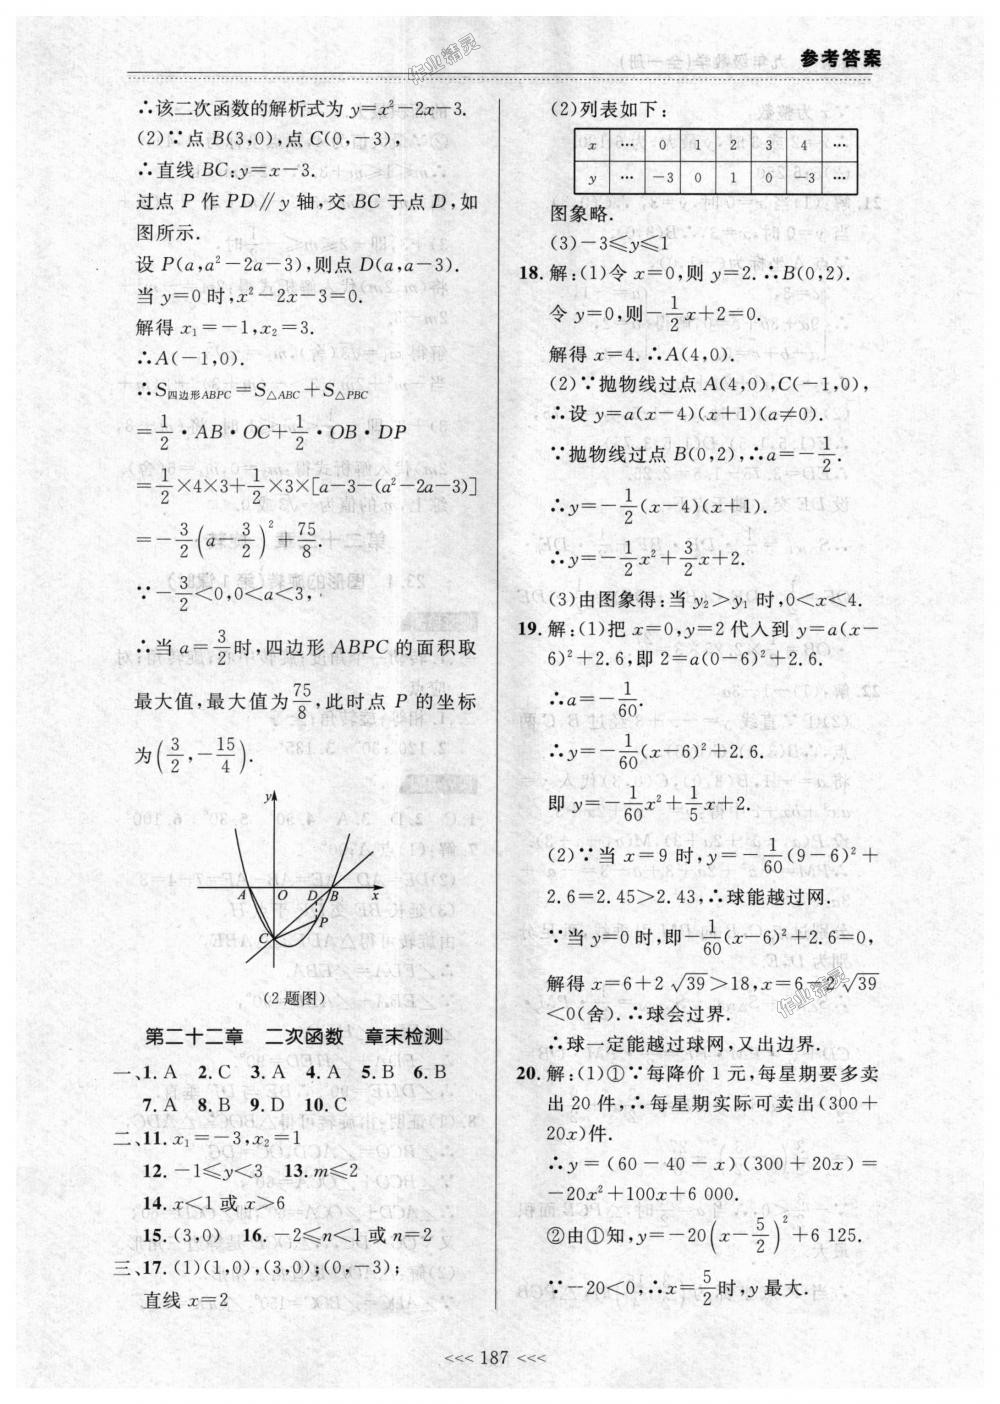 参考答案
∴该二次函数的解析式为 y=x²-2x-3.
(2)∵点 B(3,0),点 C(0,-3),
∴直线 BC:y=x-3.
过点 P 作 PD∥y 轴,交 BC 于点 D,如
图所示.
设 P(a,a²-2a-3),则点 D(a,a-3).
当 y=0 时,x²-2x-3=0.
解得 x₁=-1,x₂=3.
∴A(-1,0).
∴S四边形ABPC=S△ABC+S△PBC
=1/2·AB·OC+1/2·OB·DP
=1/2×4×3+1/2×3×[a-3-(a²-2a-3)]
=-3/2(a-3/2)²+75/8.
∵-3/2<0,0<a<3,
∴当 a=3/2时,四边形 ABPC 的面积取
最大值,最大值为75/8,此时点 P 的坐标
为(3/2,-15/4).
y
A O D B x
P
C
(2题图)
第二十二章 二次函数 章末检测
一、1. A 2. C 3. A 4. A 5. B 6. B
7. A 8. B 9. D 10. C
二、11. x₁=-3,x₂=1
12. -1≤y<3 13. m≤2
14. x<1 或 x>6
15. (3,0) 16. -2≤n<1 或 n=2
三、17. (1)(1,0),(3,0);(0,-3);
直线 x=2
(2)列表如下:
x … 0 1 2 3 4 …
y … -3 0 1 0 -3 …
图象略.
(3)-3≤y≤1
18. 解:(1)令 x=0,则 y=2.∴B(0,2).
令 y=0,则-1/2x+2=0.
解得 x=4.∴A(4,0).
(2)∵抛物线过点 A(4,0),C(-1,0),
∴设 y=a(x-4)(x+1)(a≠0).
∵抛物线过点 B(0,2),∴a=-1/2.
∴y=-1/2(x-4)(x+1).
∴y=-1/2x²+3/2x+2.
(3)由图象得:当 y₂>y₁ 时,0<x<4.
19. 解:(1)把 x=0,y=2 代人到 y=a(x-
6)²+2.6,即 2=a(0-6)²+2.6.
∴a=-1/60.
∴y=-1/60(x-6)²+2.6.
即 y=-1/60x²+1/5x+2.
(2)∵当 x=9 时,y=-1/60(9-6)²+
2.6=2.45>2.43,∴球能越过网.
∵当 y=0 时,即-1/60(x-6)²+2.6=0,
解得 x=6+2√39>18,x=6-2√39
<0(舍).∴球会过界.
∴球一定能越过球网,又出边界.
20. 解:(1)①∵每降价 1 元,每星期要多卖
出 20 件,∴每星期实际可卖出(300+
20x)件.
∴y=(60-40-x)(300+20x)=
-20x²+100x+6 000.
②由①知,y=-20(x-5/2)²+6 125.
∵-20<0,∴x=5/2时,y 最大.
<<< 187 <<<